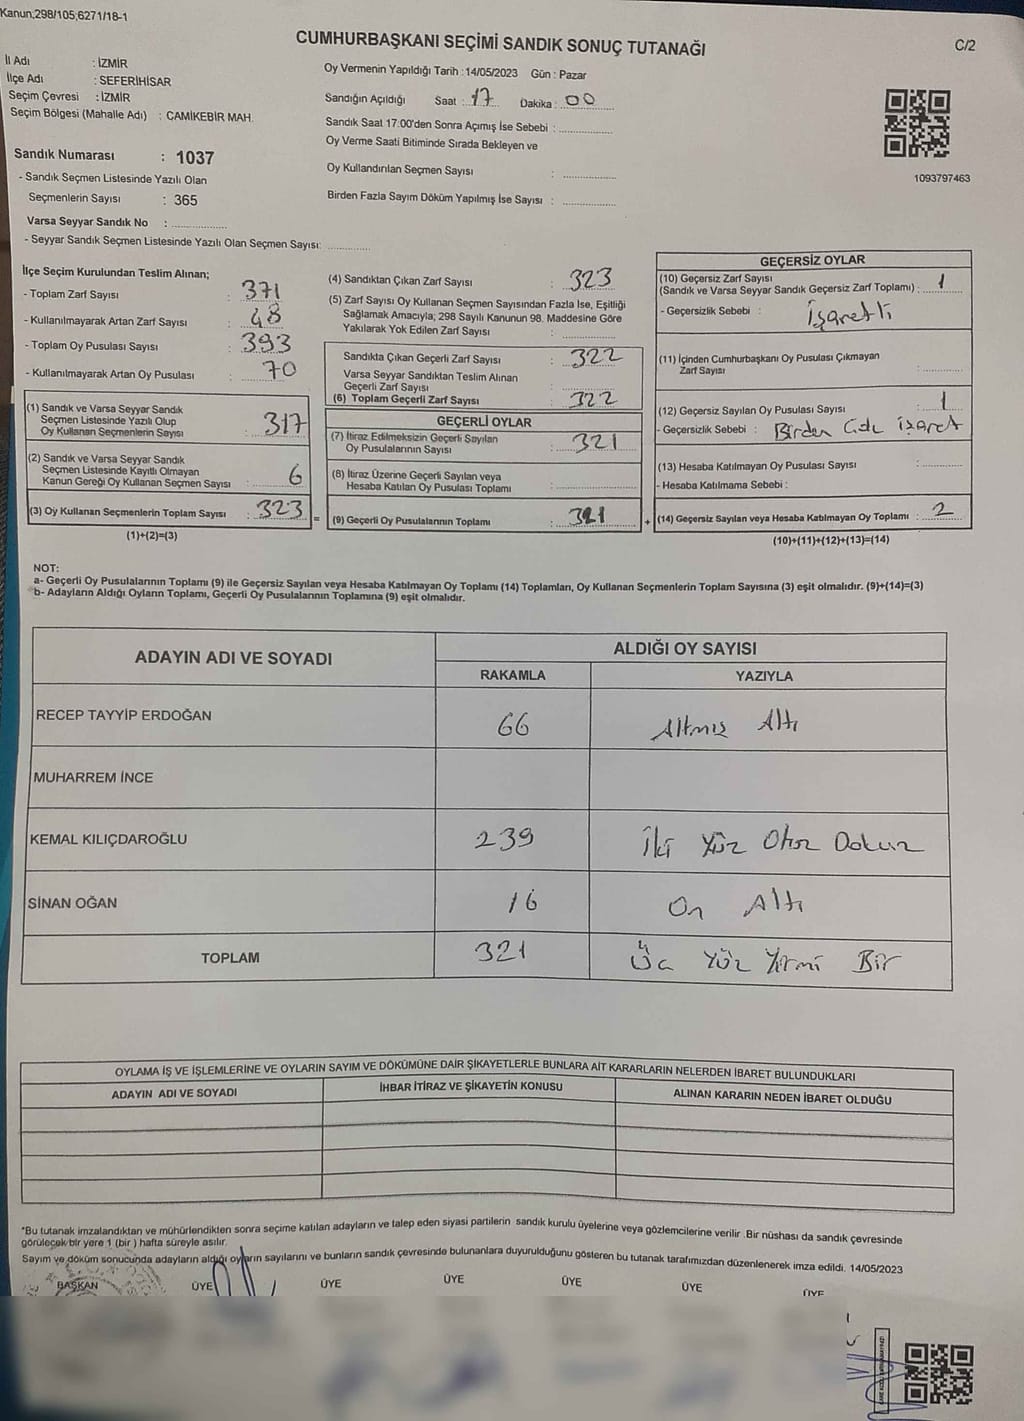 Kanun;298/105;6271/18-1
CUMHURBAŞKANI SEÇİMİ SANDIK SONUÇ TUTANAĞI
C/2
İl Adı : İZMİR
İlçe Adı : SEFERİHİSAR
Seçim Çevresi : İZMİR
Seçim Bölgesi (Mahalle Adı) : CAMİKEBİR MAH.
Oy Vermenin Yapıldığı Tarih :14/05/2023 Gün : Pazar
Sandığın Açıldığı Saat : 17 Dakika : 00
Sandık Saat 17:00'den Sonra Açımış İse Sebebi :
Oy Verme Saati Bitiminde Sırada Bekleyen ve
Oy Kullandırılan Seçmen Sayısı :
Birden Fazla Sayım Döküm Yapılmış İse Sayısı :
1093797463
Sandık Numarası : 1037
- Sandık Seçmen Listesinde Yazılı Olan
Seçmenlerin Sayısı : 365
Varsa Seyyar Sandık No :
- Seyyar Sandık Seçmen Listesinde Yazılı Olan Seçmen Sayısı:
İlçe Seçim Kurulundan Teslim Alınan;
- Toplam Zarf Sayısı : 371
- Kullanılmayarak Artan Zarf Sayısı : 48
- Toplam Oy Pusulası Sayısı : 393
- Kullanılmayarak Artan Oy Pusulası : 70
(1) Sandık ve Varsa Seyyar Sandık
Seçmen Listesinde Yazılı Olup
Oy Kullanan Seçmenlerin Sayısı : 317
(2) Sandık ve Varsa Seyyar Sandık
Seçmen Listesinde Kayıtlı Olmayan
Kanun Gereği Oy Kullanan Seçmen Sayısı : 6
(3) Oy Kullanan Seçmenlerin Toplam Sayısı : 323 =
(1)+(2)=(3)
(4) Sandıktan Çıkan Zarf Sayısı : 323
(5) Zarf Sayısı Oy Kullanan Seçmen Sayısından Fazla İse, Eşitliği
Sağlamak Amacıyla; 298 Sayılı Kanunun 98. Maddesine Göre
Yakılarak Yok Edilen Zarf Sayısı :
Sandıkta Çıkan Geçerli Zarf Sayısı : 322
Varsa Seyyar Sandıktan Teslim Alınan
Geçerli Zarf Sayısı :
(6) Toplam Geçerli Zarf Sayısı : 322
GEÇERLİ OYLAR
(7) İtiraz Edilmeksizin Geçerli Sayılan
Oy Pusulalarının Sayısı : 321
(8) İtiraz Üzerine Geçerli Sayılan veya
Hesaba Katılan Oy Pusulası Toplamı :
(9) Geçerli Oy Pusulalarının Toplamı : 321 +
GEÇERSİZ OYLAR
(10) Geçersiz Zarf Sayısı
(Sandık ve Varsa Seyyar Sandık Geçersiz Zarf Toplamı) : 1
- Geçersizlik Sebebi : İşaretli
(11) İçinden Cumhurbaşkanı Oy Pusulası Çıkmayan
Zarf Sayısı :
(12) Geçersiz Sayılan Oy Pusulası Sayısı : 1
- Geçersizlik Sebebi : Birden işaret
(13) Hesaba Katılmayan Oy Pusulası Sayısı :
- Hesaba Katılmama Sebebi :
(14) Geçersiz Sayılan veya Hesaba Katılmayan Oy Toplamı : 2
(10)+(11)+(12)+(13)=(14)
NOT:
a- Geçerli Oy Pusulalarının Toplamı (9) ile Geçersiz Sayılan veya Hesaba Katılmayan Oy Toplamı (14) Toplamları, Oy Kullanan Seçmenlerin Toplam Sayısına (3) eşit olmalıdır. (9)+(14)=(3)
b- Adayların Aldığı Oyların Toplamı, Geçerli Oy Pusulalarının Toplamına (9) eşit olmalıdır.
ADAYIN ADI VE SOYADI
ALDIĞI OY SAYISI
RAKAMLA YAZIYLA
RECEP TAYYİP ERDOĞAN 66 Altmış Altı
MUHARREM İNCE
KEMAL KILIÇDAROĞLU 239 İki Yüz Otuz Dokuz
SİNAN OĞAN 16 On Altı
TOPLAM 321 Üç Yüz Yirmi Bir
OYLAMA İŞ VE İŞLEMLERİNE VE OYLARIN SAYIM VE DÖKÜMÜNE DAİR ŞİKAYETLERLE BUNLARA AİT KARARLARIN NELERDEN İBARET BULUNDUKLARI
ADAYIN ADI VE SOYADI İHBAR İTİRAZ VE ŞİKAYETİN KONUSU ALINAN KARARIN NEDEN İBARET OLDUĞU
*Bu tutanak imzalandıktan ve mühürlendikten sonra seçime katılan adayların ve talep eden siyasi partilerin sandık kurulu üyelerine veya gözlemcilerine verilir. Bir nüshası da sandık çevresinde
görülecek bir yere 1 (bir ) hafta süreyle asılır.
Sayım ve döküm sonucunda adayların aldığı oyların sayılarını ve bunların sandık çevresinde bulunanlara duyurulduğunu gösteren bu tutanak tarafımızdan düzenlenerek imza edildi. 14/05/2023
BAŞKAN ÜYE ÜYE ÜYE ÜYE ÜYE ÜYE